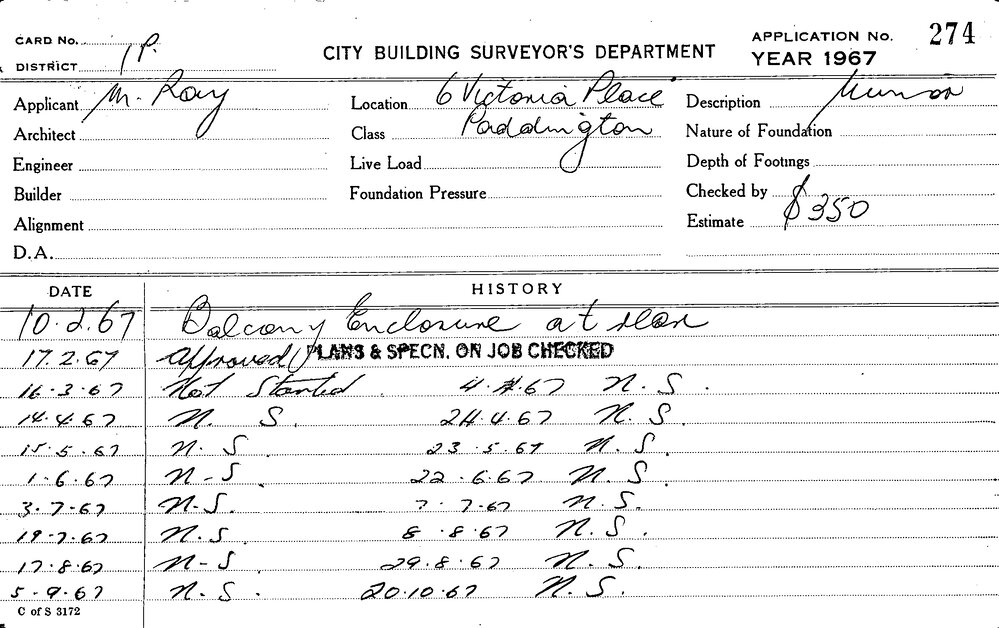 CARD No. 1P.
CITY BUILDING SURVEYOR'S DEPARTMENT
APPLICATION No. 274
DISTRICT
YEAR 1967
Applicant M. Ray
Location 6 Victoria Place
Description
Architect
Class Paddington
Nature of Foundation
Engineer
Live Load
Depth of Footings
Builder
Foundation Pressure
Checked by
Alignment
Estimate $350
D.A.
DATE HISTORY
10.2.67 Balcony Enclosure at rear
17.2.67 Approved PLANS & SPECN. ON JOB CHECKED
16.3.67 Not Started. 4.4.67 N.S.
14.4.67 N. S. 24.4.67 N.S.
15.5.67 N.S. 23.5.67 N.S.
1.6.67 N-S. 22.6.67 N.S.
3.7.67 N-S. 7.7.67 N.S.
19.7.67 N.S. 8.8.67 N.S.
17.8.67 N-S. 29.8.67 N.S.
5.9.67 N.S. 20.10.67 N.S.
C of S 3172